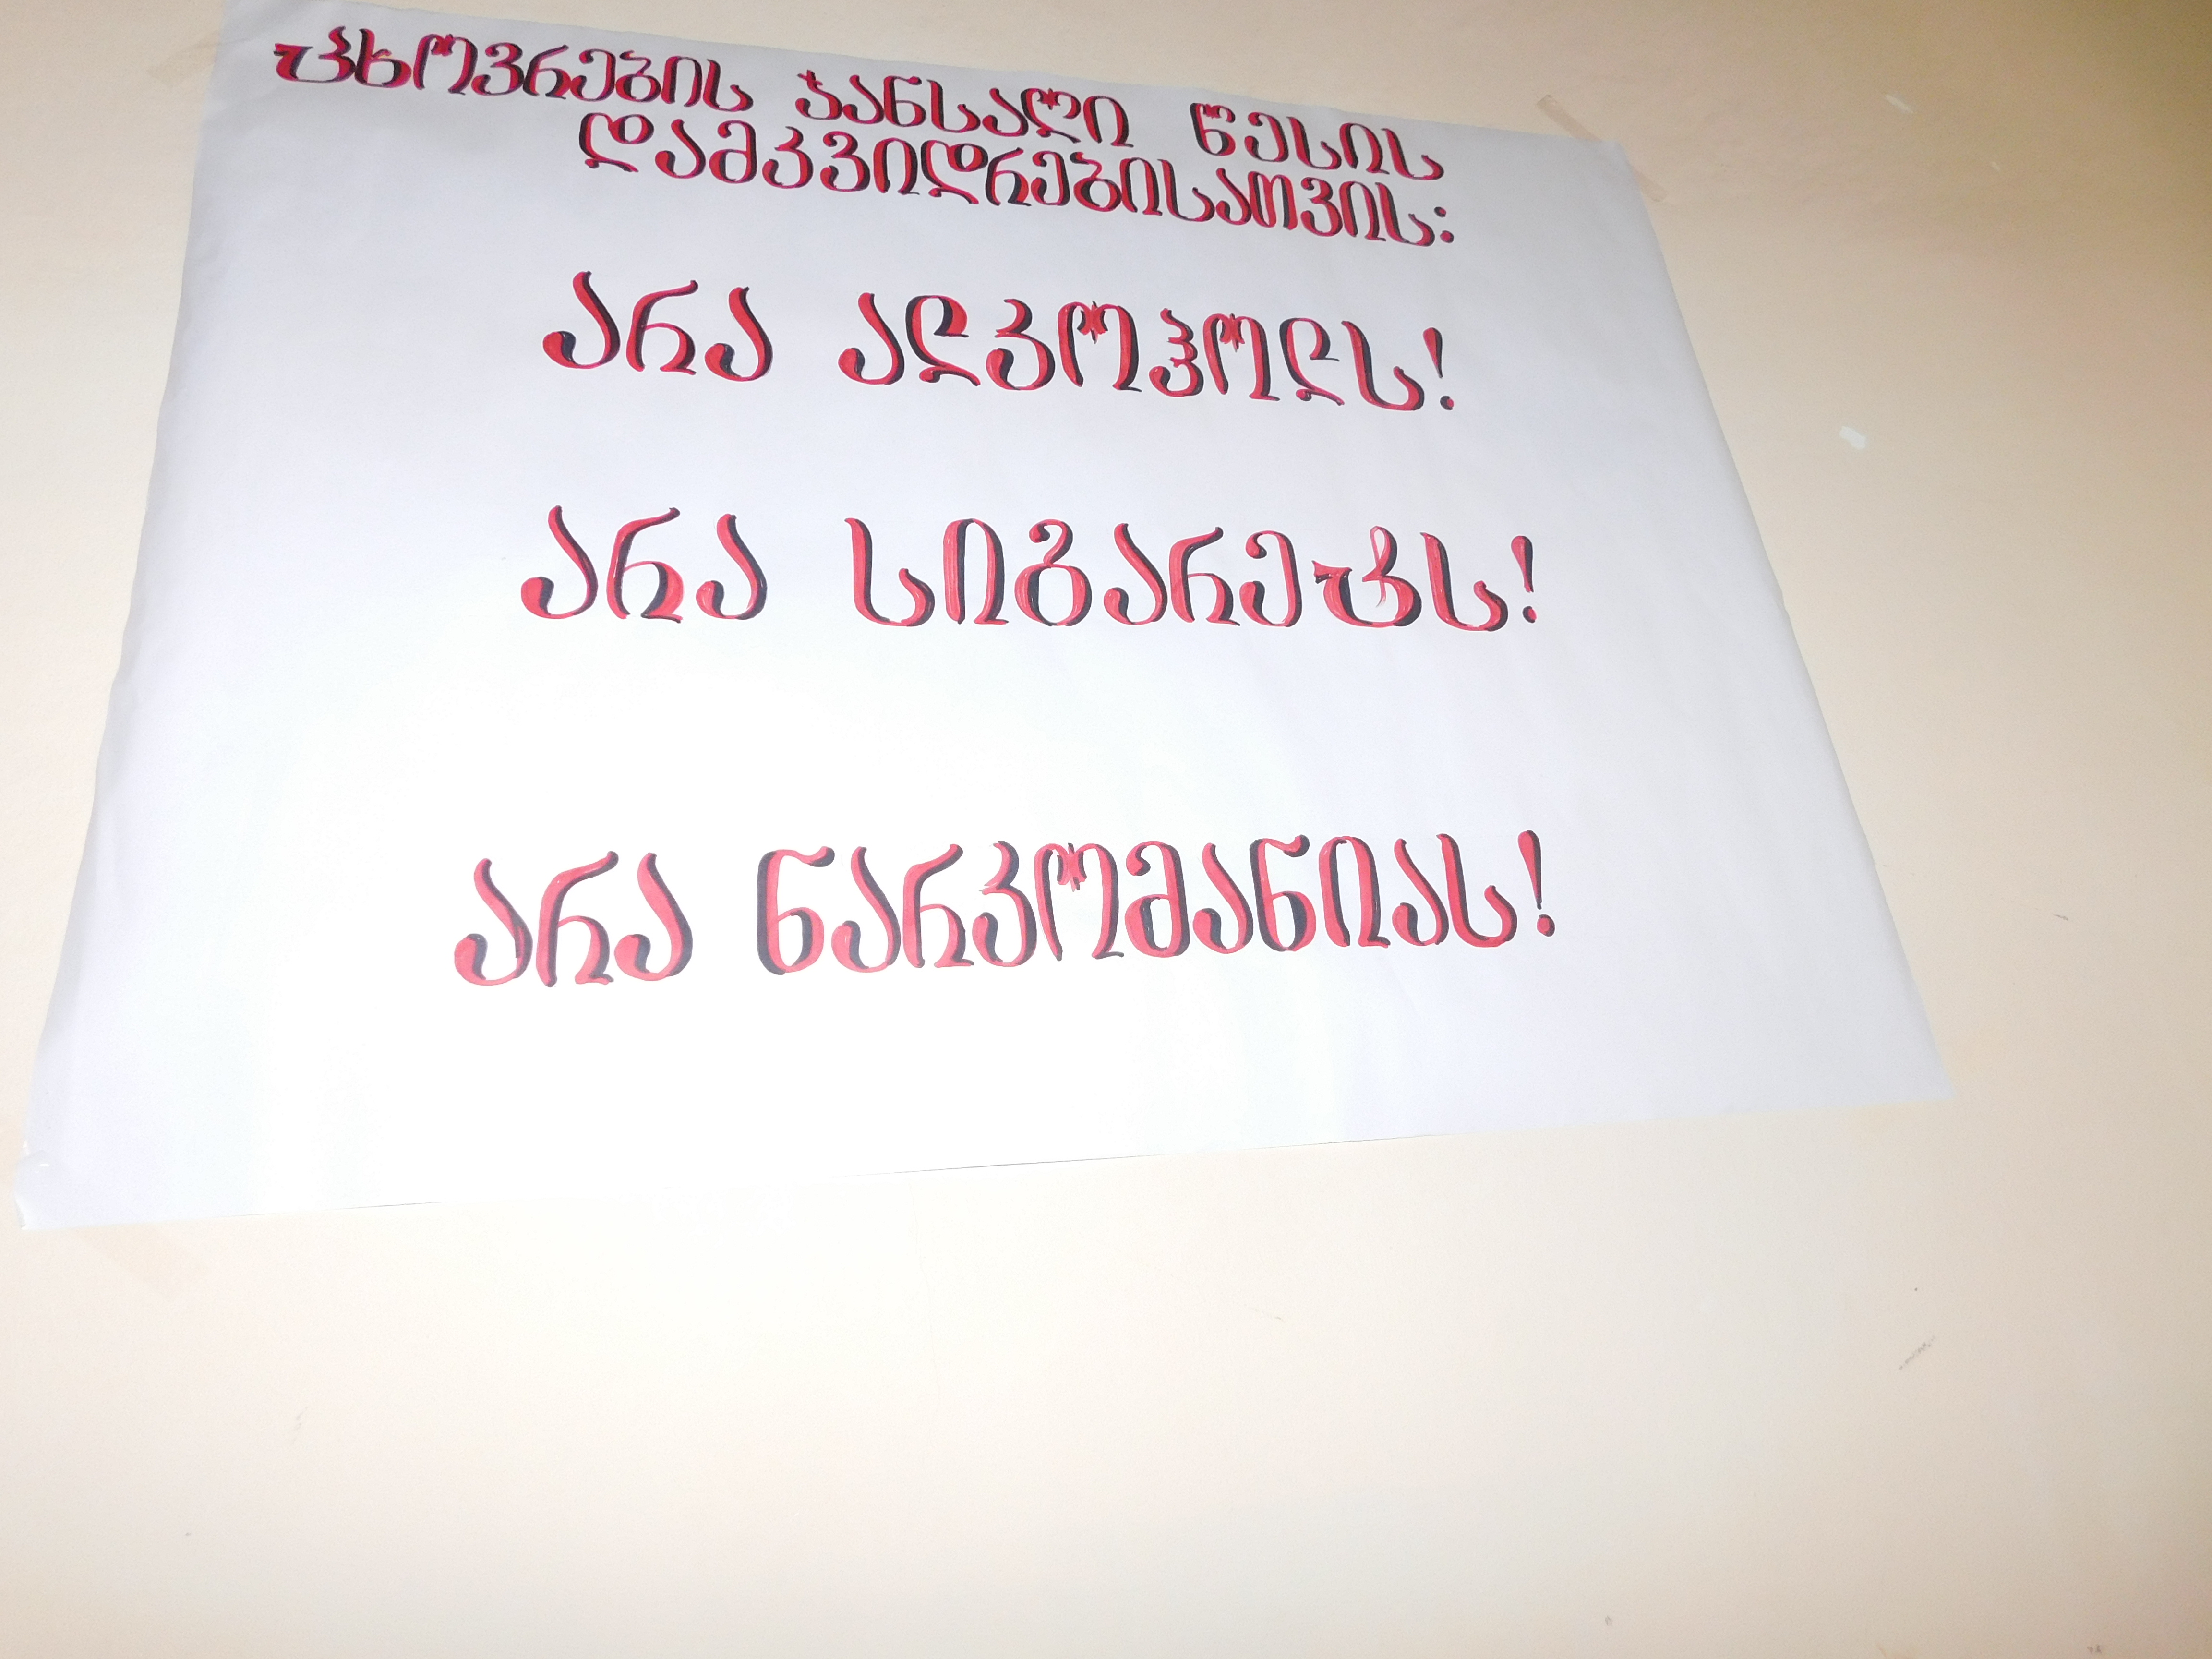 ცხოვრების ჯანსაღი წესის
დამკვიდრებისათვის:
არა ალკოჰოლს!
არა სიგარეტს!
არა ნარკომანიას!